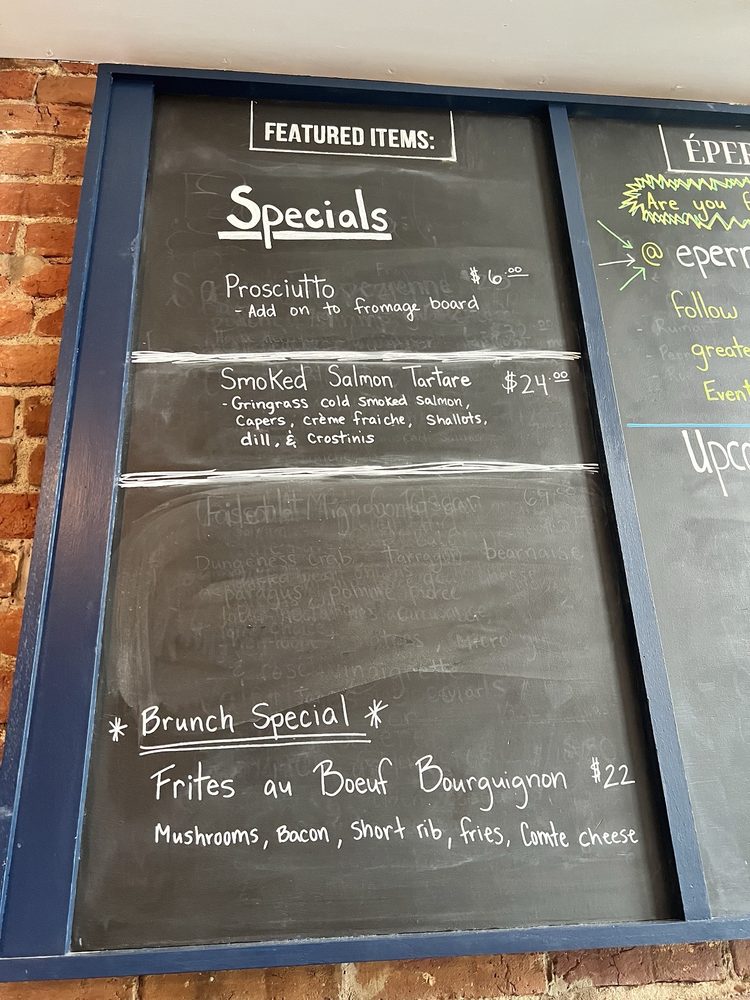 FEATURED ITEMS:
Specials
Prosciutto $6.00
- Add on to fromage board
Smoked Salmon Tartare $24.00
- Gringrass cold smoked salmon,
Capers, crème fraiche, shallots,
dill, & Crostinis
Dungeness Crab, Tarragon bearnaise
* Brunch Special *
Frites au Boeuf Bourguignon $22
Mushrooms, Bacon, short rib, fries, Comte cheese
ÉPER
Are you f
@ eperr
follow
greate
Event
Upco